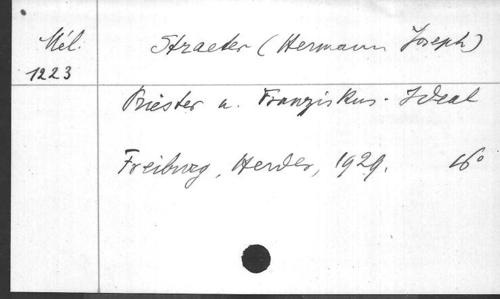 Mél. Straeter (Hermann Joseph)
1223
Priester u. Franziskus-Ideal
Freiburg, Herder, 1929. 16°